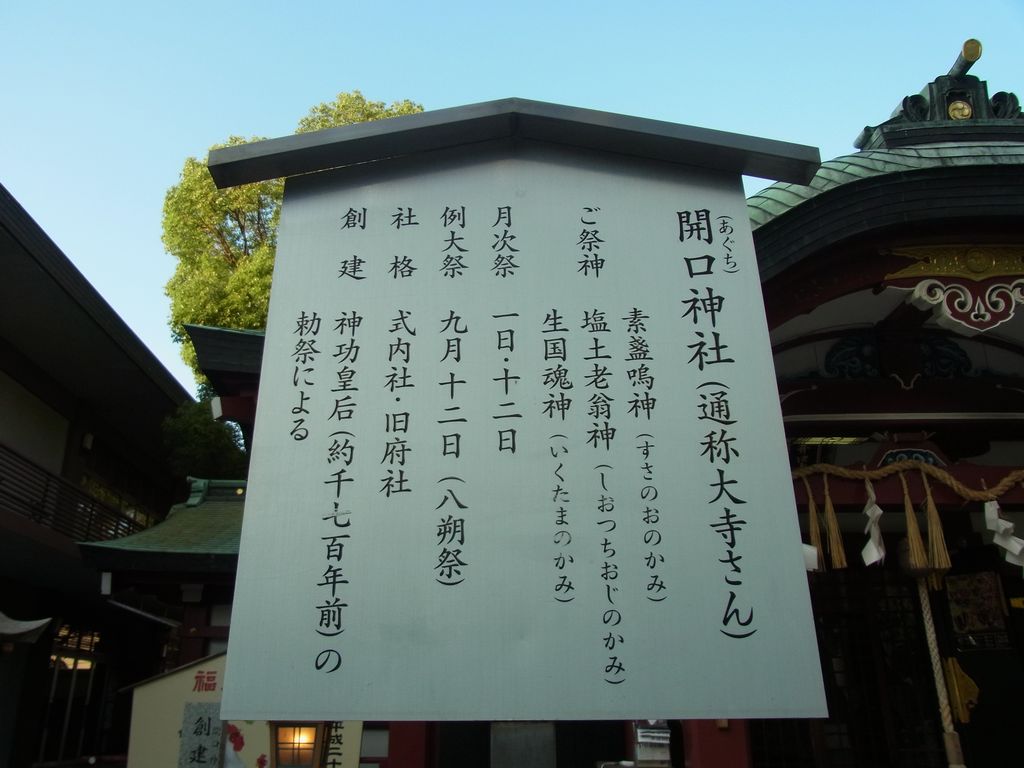 開口神社(通称大寺さん)
(あぐち)
ご祭神
素盞嗚神(すさのおのかみ)
塩土老翁神(しおつちおじのかみ)
生国魂神(いくたまのかみ)
月次祭 一日・十二日
例大祭 九月十二日(八朔祭)
社格 式内社・旧府社
創建 神功皇后(約千七百年前)の
勅祭による
福
創建
平成二十